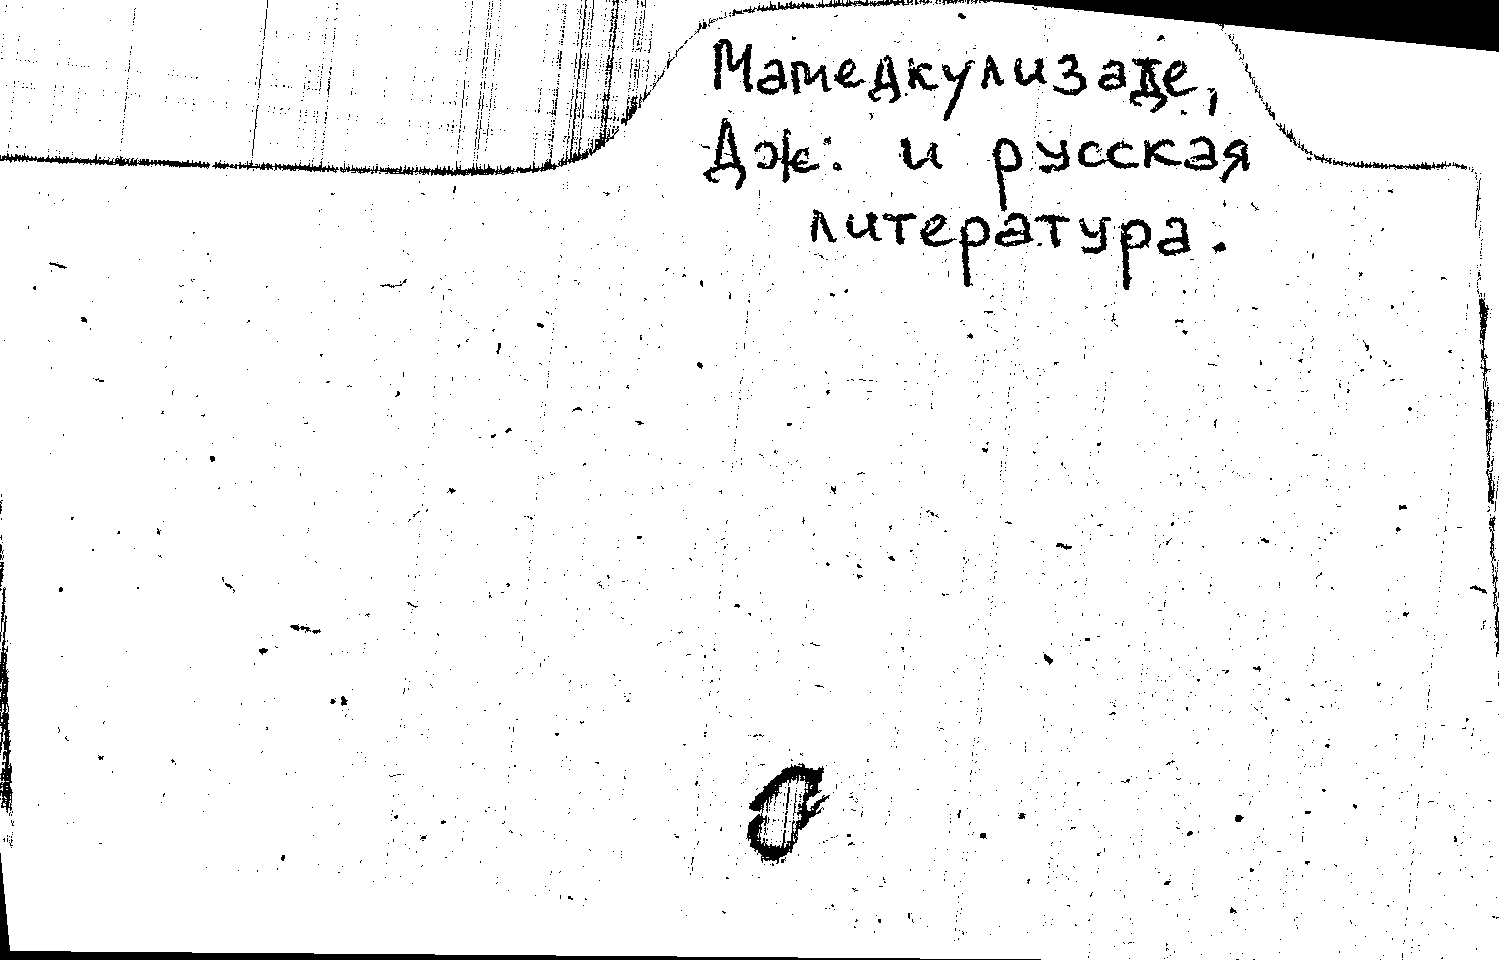 Мамедкулизаде,
Дж. и русская
литература.